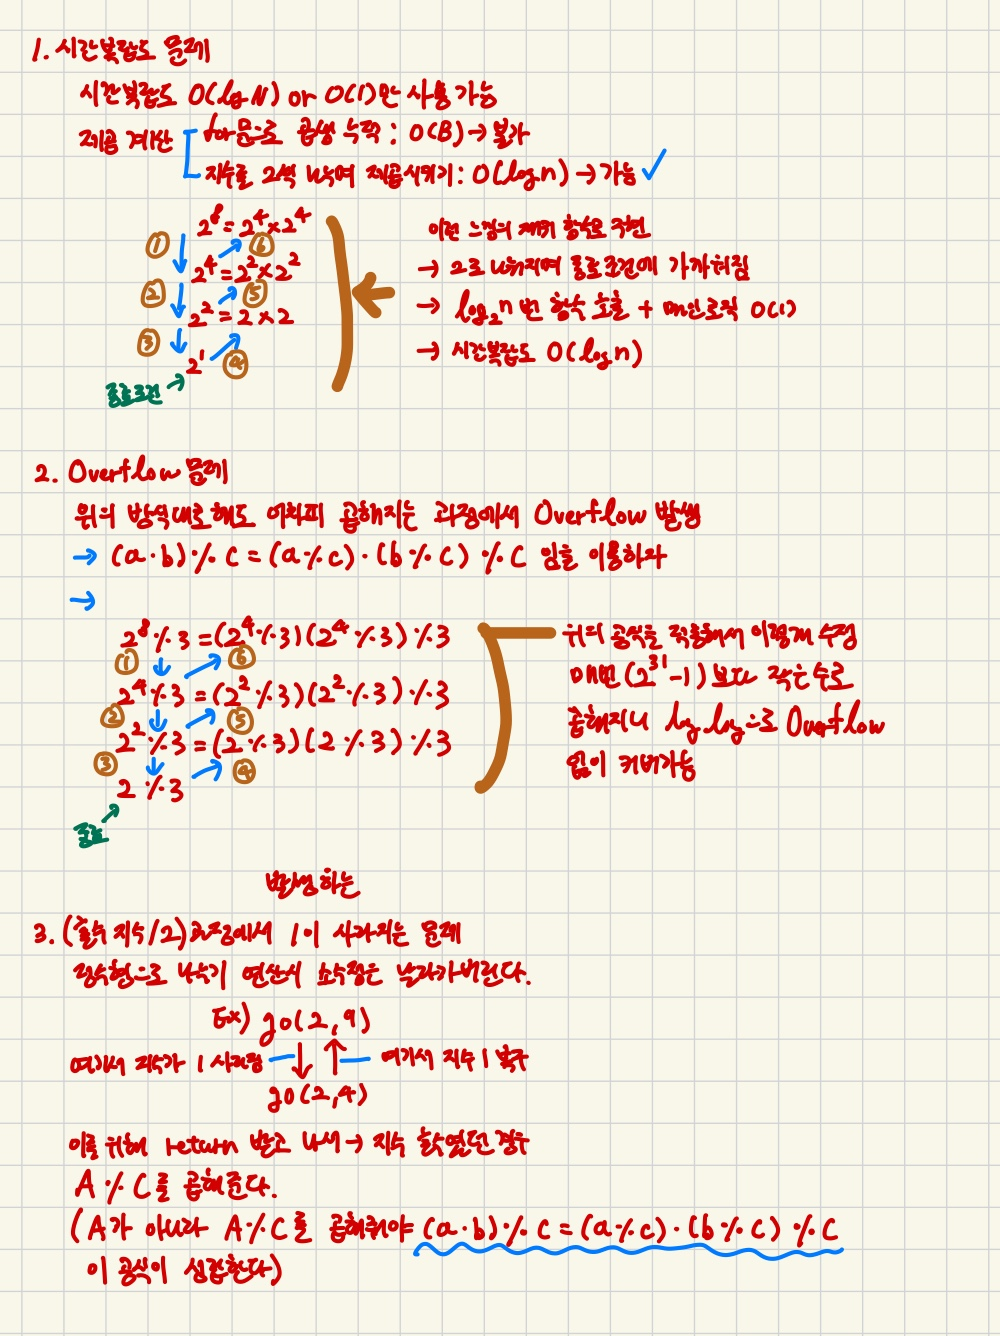 1. 시간복잡도 문제
시간복잡도 O(log N) or O(1)만 사용가능
제곱 계산
for문으로 곱셈 누적 : O(B) → 불가
지수를 2씩 나누며 제곱시키기 : O(log n) → 가능 ✓
2⁸ = 2⁴ × 2⁴
① ⑥
2⁴ = 2² × 2²
② ⑤
2² = 2 × 2
③ ④
2¹
종료조건 →
이런 느낌의 재귀 함수로 구현
→ 2로 나눠지며 종료조건에 가까워짐
→ log₂n 번 함수 호출 + 메인로직 O(1)
→ 시간복잡도 O(log n)
2. Overflow 문제
위의 방식대로해도 어차피 곱해지는 과정에서 Overflow 발생
→ (a·b) % c = (a % c) · (b % c) % c 임을 이용하자
→
2⁸ % 3 = (2⁴ % 3)(2⁴ % 3) % 3
① ⑥
2⁴ % 3 = (2² % 3)(2² % 3) % 3
② ⑤
2² % 3 = (2 % 3)(2 % 3) % 3
③ ④
2 % 3
종료
위의 공식을 적용해서 이렇게 수정
매번 (2³¹ -1) 보다 작은수로
곱해지니 long long으로 Overflow
없이 커버가능
발생하는
3. (홀수 지수/2)과정에서 1이 사라지는 문제
정수형으로 나누기 연산시 소수점은 날라가버린다.
Ex) go(2,9)
여기서 지수가 1 사라짐
여기서 지수 1 복구
go(2,4)
이를 위해 return 받고 나서 → 지수 홀수였던 경우
A % C를 곱해준다.
(A가 아니라 A % C를 곱해줘야 (a·b) % c = (a % c) · (b % c) % c
이 공식이 성립한다)